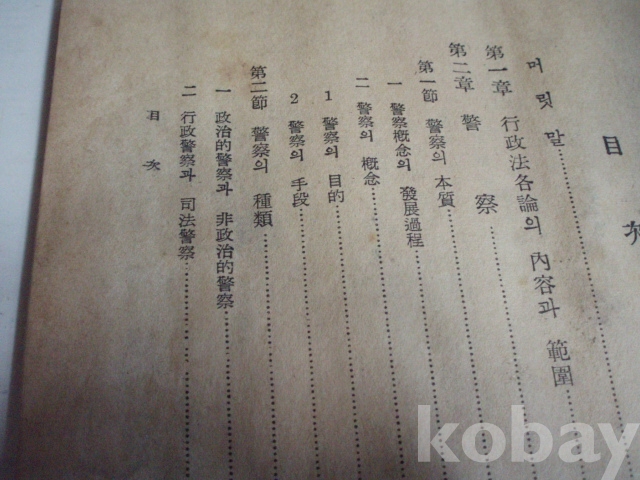 目 次
머릿말
第一章 行政法各論의 內容과 範圍
第二章 警察
第一節 警察의 本質
一 警察槪念의 發展過程
二 警察의 槪念
1 警察의 目的
2 警察의 手段
第二節 警察의 種類
一 政治的警察과 非政治的警察
二 行政警察과 司法警察
目 次
kobay